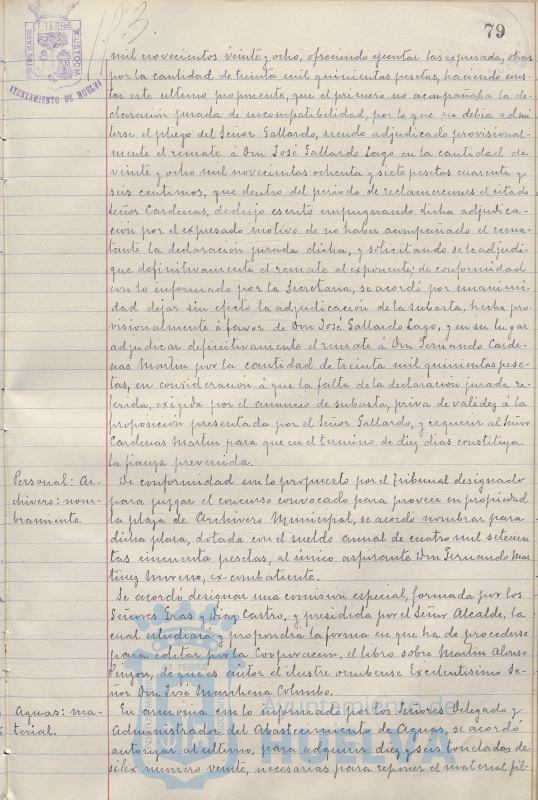 79
AYUNTAMIENTO DE HUELVA
mil novecientos veinte y ocho, ofreciendo ejecutar las expresadas obras
por la cantidad de treinta mil quinientas pesetas, haciendo cons-
tar este ultimo proponente, que el primero no acompañaba la de-
claración jurada de incompatibilidad, por lo que no debía admi-
tirse el pliego del Señor Gallardo, siendo adjudicado provisional-
mente el remate á Don José Gallardo Lago en la cantidad de
veinte y ocho mil novecientas ochenta y siete pesetas cuarenta y
seis centimos, que dentro del periodo de reclamaciones el citado
Señor Cardenas, dedujo escrito impugnando dicha adjudica-
ción por el expresado motivo de no haber acompañado el rema-
tante la declaración jurada dicha, y solicitando se le adjudi-
que definitivamente el remate al exponente; de conformidad
con lo informado por la Secretaria, se acordó por unanimi-
dad dejar sin efecto la adjudicación de la subasta, hecha pro-
visionalmente á favor de Don José Gallardo Lago, y en su lugar
adjudicar definitivamente el remate á Don Fernando Carde-
nas Martin por la cantidad de treinta mil quinientas pese-
tas, en consideración á que la falta de la declaración jurada re-
ferida, exigida por el anuncio de subasta, priva de validez á la
proposición presentada por el Señor Gallardo, y requerir al Señor
Cardenas Martin para que en el termino de diez dias constituya
la fianza prevenida.
Personal: Ar-
chivero: nom-
bramiento.
De conformidad con lo propuesto por el Tribunal designado
para juzgar el concurso convocado para proveer en propiedad
la plaza de Archivero Municipal, se acordó nombrar para
dicha plaza, dotada con el sueldo anual de cuatro mil setecien-
tas cincuenta pesetas, al único aspirante Don Fernando Mar-
tinez Moreno, ex-combatiente.
Se acordó designar una comisión especial, formada por los
Señores Eras y Diaz Castro, y presidida por el Señor Alcalde, la
cual estudiará y propondrá la forma en que ha de procederse
para editar por la Corporación, el libro sobre Martin Alonso
Pinzon, de que es autor el ilustre onubense Excelentisimo Se-
ñor Don José Marchena Colombo.
Aguas: ma-
terial.
En armonia con lo informado por los Señores Delegado y
Administrador del Abastecimiento de Aguas, se acordó
autorizar al ultimo, para adquirir diez y seis toneladas de
silex numero veinte, necesarias para reponer el material fil-
Ayuntamiento de
HUELVA